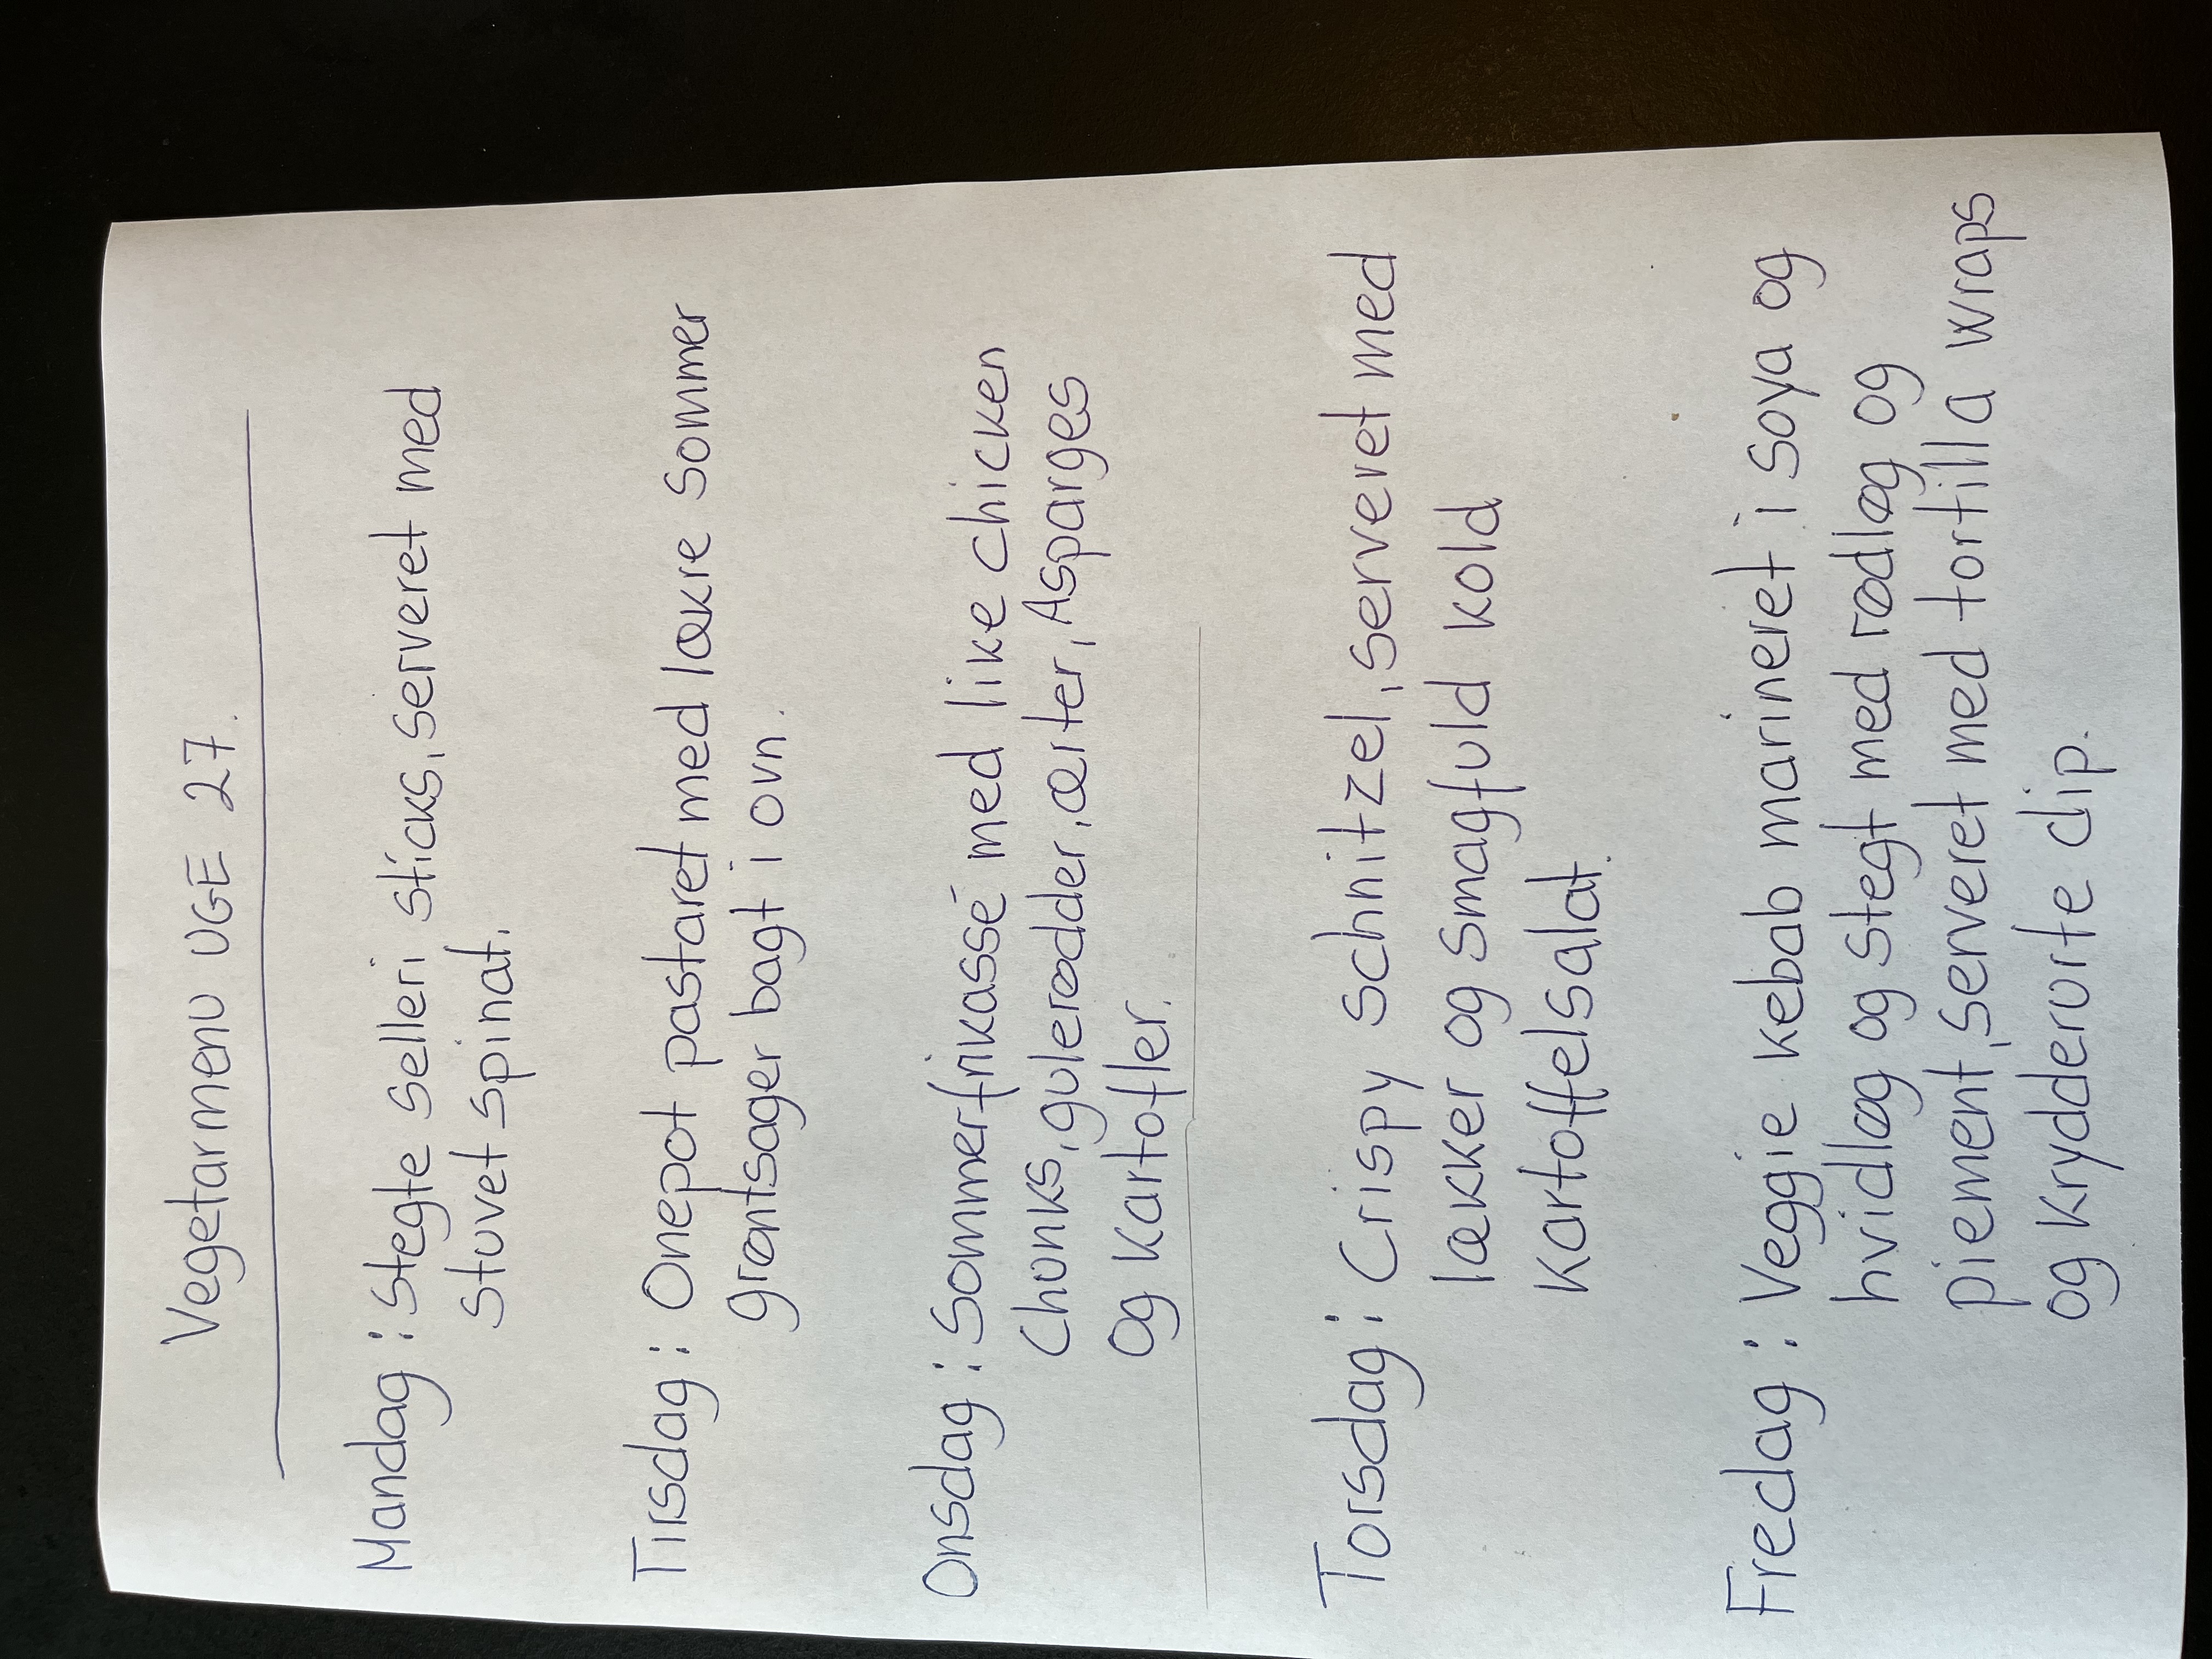 Vegetarmenu UGE 27.
Mandag: Stegte selleri sticks, serveret med
stuvet spinat.
Tirsdag: Onepot pastaret med lækre sommer
grøntsager bagt i ovn.
Onsdag: Sommerfrikassé med like chicken
Chunks, gulerødder, ærter, Asparges
og kartofler.
Torsdag: Crispy schnitzel, serveret med
lækker og smagfuld kold
kartoffelsalat.
Fredag: Veggie kebab marineret i soya og
hvidløg og stegt med rødløg og
piement, serveret med tortilla wraps
og krydderurte dip.